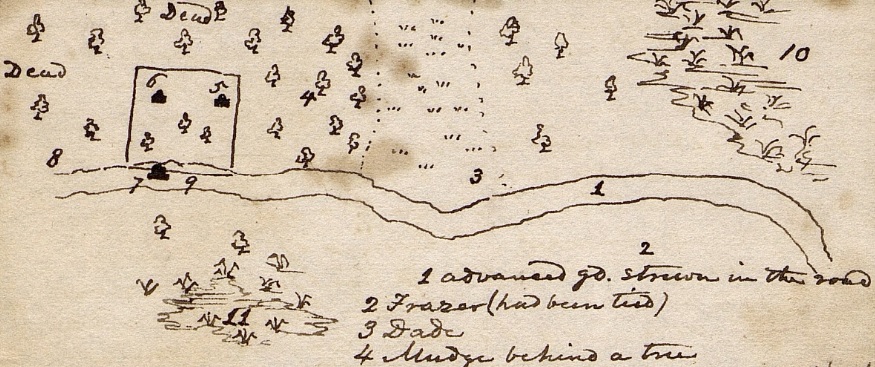 Dead
Dead
10
5
6
4
8
3
7 9
1
2
1 advanced gd. strewn in the road
2 Frazer (had been tied)
11
3 Dade
4 Mudge behind a tree